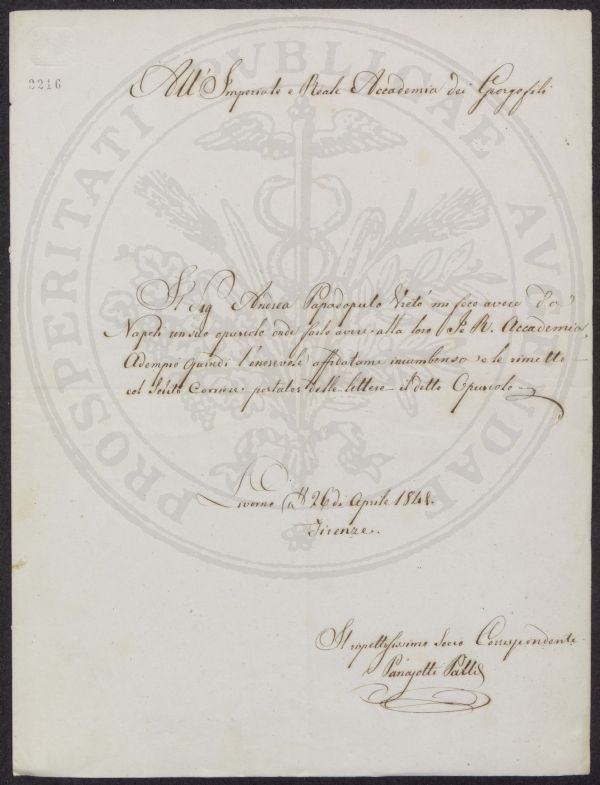 2216
All' Imperiale e Reale Accademia dei Georgofili
Il Sig Andrea Papadopulo Vretò mi fece avere da
Napoli un suo opuscolo onde farlo avere alla loro I e R. Accademia,
Adempio quindi l'onorevole affidatame incumbensa e le rimetto
col Solito Corriere portator delle lettere il detto Opuscolo
Livorno li 26 di Aprile 1841.
Firenze.
Il rispettosissimo Socio Correspondente
Panajotti Palli
PROSPERITATI PUBLICAE AUGENDAE